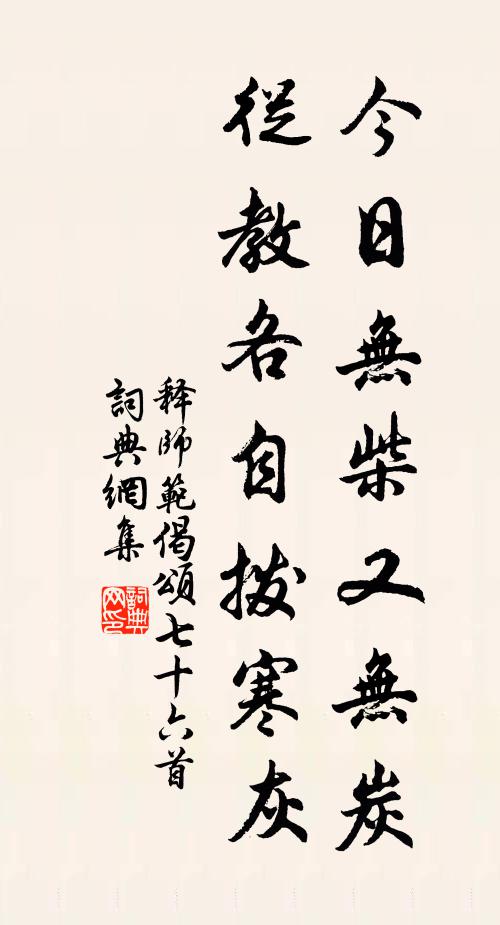 今日無柴又無炭
從教各自撥寒灰
释師範偈頌七十六首
詞典網集
詞典网印